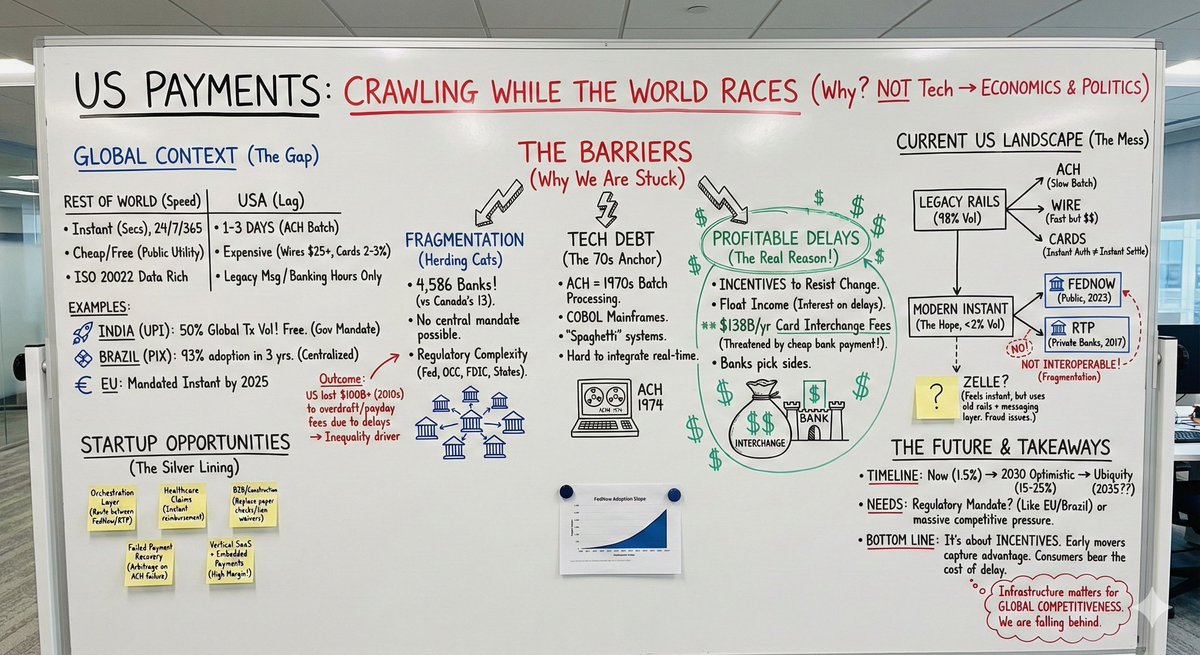 US PAYMENTS: CRAWLING WHILE THE WORLD RACES (Why? NOT Tech → ECONOMICS & POLITICS)
GLOBAL CONTEXT (The Gap)
REST OF WORLD (Speed)
• Instant (Secs), 24/7/365
• Cheap/Free (Public Utility)
• ISO 20022 Data Rich
USA (Lag)
• 1-3 DAYS (ACH Batch)
• Expensive (Wires $25+, Cards 2-3%)
• Legacy Msg/Banking Hours Only
EXAMPLES:
INDIA (UPI): 50% Global Tx Vol! Free. (Gov Mandate)
BRAZIL (PIX): 93% adoption in 3 yrs. (Centralized)
€ EU: Mandated Instant by 2025
STARTUP OPPORTUNITIES
(The Silver Lining)
Orchestration
Layer
(Route between
FedNow/RTP)
Healthcare
Claims
(Instant
reimbursement)
B2B/Construction
(Replace paper
checks/lien
waivers)
Failed Payment
Recovery
(Arbitrage on
ACH failure)
Vertical SaaS
+ Embedded
Payments
(High Margin!)
THE BARRIERS
(Why We Are Stuck)
FRAGMENTATION
(Herding Cats)
• 4,586 Banks!
(vs Canada's 13).
• No central mandate
possible.
• Regulatory Complexity
(Fed, OCC, FDIC, States).
Outcome:
US lost $100B+ (2010s)
to overdraft/payday
fees due to delays
→ Inequality driver
TECH DEBT
(The 70s Anchor)
• ACH = 1970s Batch
Processing.
• COBOL Mainframes.
• "Spaghetti" systems.
• Hard to integrate real-time.
ACH 1974
ACH
1974
PROFITABLE DELAYS
(The Real Reason!)
• INCENTIVES to Resist Change.
• Float Income (Interest on delays).
** $138B/yr Card Interchange Fees
(Threatened by cheap bank payment!).
• Banks pick sides.
$$
INTERCHANGE
$
BANK
FedNow Adoption Slope
CURRENT US LANDSCAPE (The Mess)
LEGACY RAILS
(98% Vol)
ACH
(Slow Batch)
WIRE
(Fast but $$)
CARDS
(Instant Auth ≠ Instant Settle)
MODERN INSTANT
(The Hope, <2% Vol)
FEDNOW
(Public, 2023)
RTP
(Private Banks, 2017)
NO!
NOT INTEROPERABLE!
(Fragmentation)
?
ZELLE?
(Feels instant, but uses
old rails + messaging
layer. Fraud issues.)
THE FUTURE & TAKEAWAYS
• TIMELINE: Now (1.5%) → 2030 Optimistic → Ubiquity
(15-25%) (2035??)
• NEEDS: Regulatory Mandate? (Like EU/Brazil) or
massive competitive pressure.
• BOTTOM LINE: It's about INCENTIVES. Early movers
capture advantage. Consumers bear the
cost of delay.
Infrastructure matters for
GLOBAL COMPETITIVENESS.
We are falling behind.